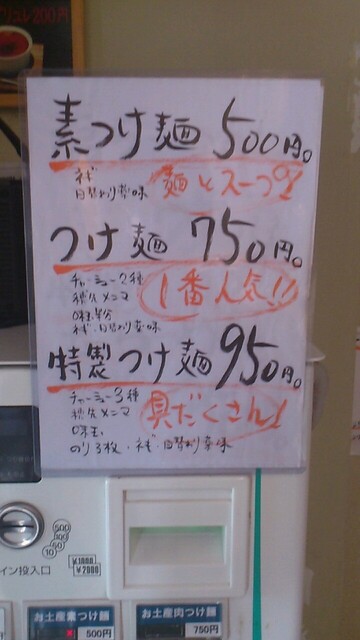 リスレ200円
素つけ麺 500円。
ネギ
日替わり薬味
麺とスープ
つけ麺 750円。
チャーシュー2種
穂先メンマ
味玉半分
ネギ・日替わり薬味
1番人気!!
特製つけ麺 950円。
チャーシュー3種
穂先メンマ
味玉
のり3枚・ネギ・日替わり薬味
具だくさん!
500
100
50
10
¥1000
¥2000
イン投入口
お土産素つけ麺
500円
お土産肉つけ麺
750円